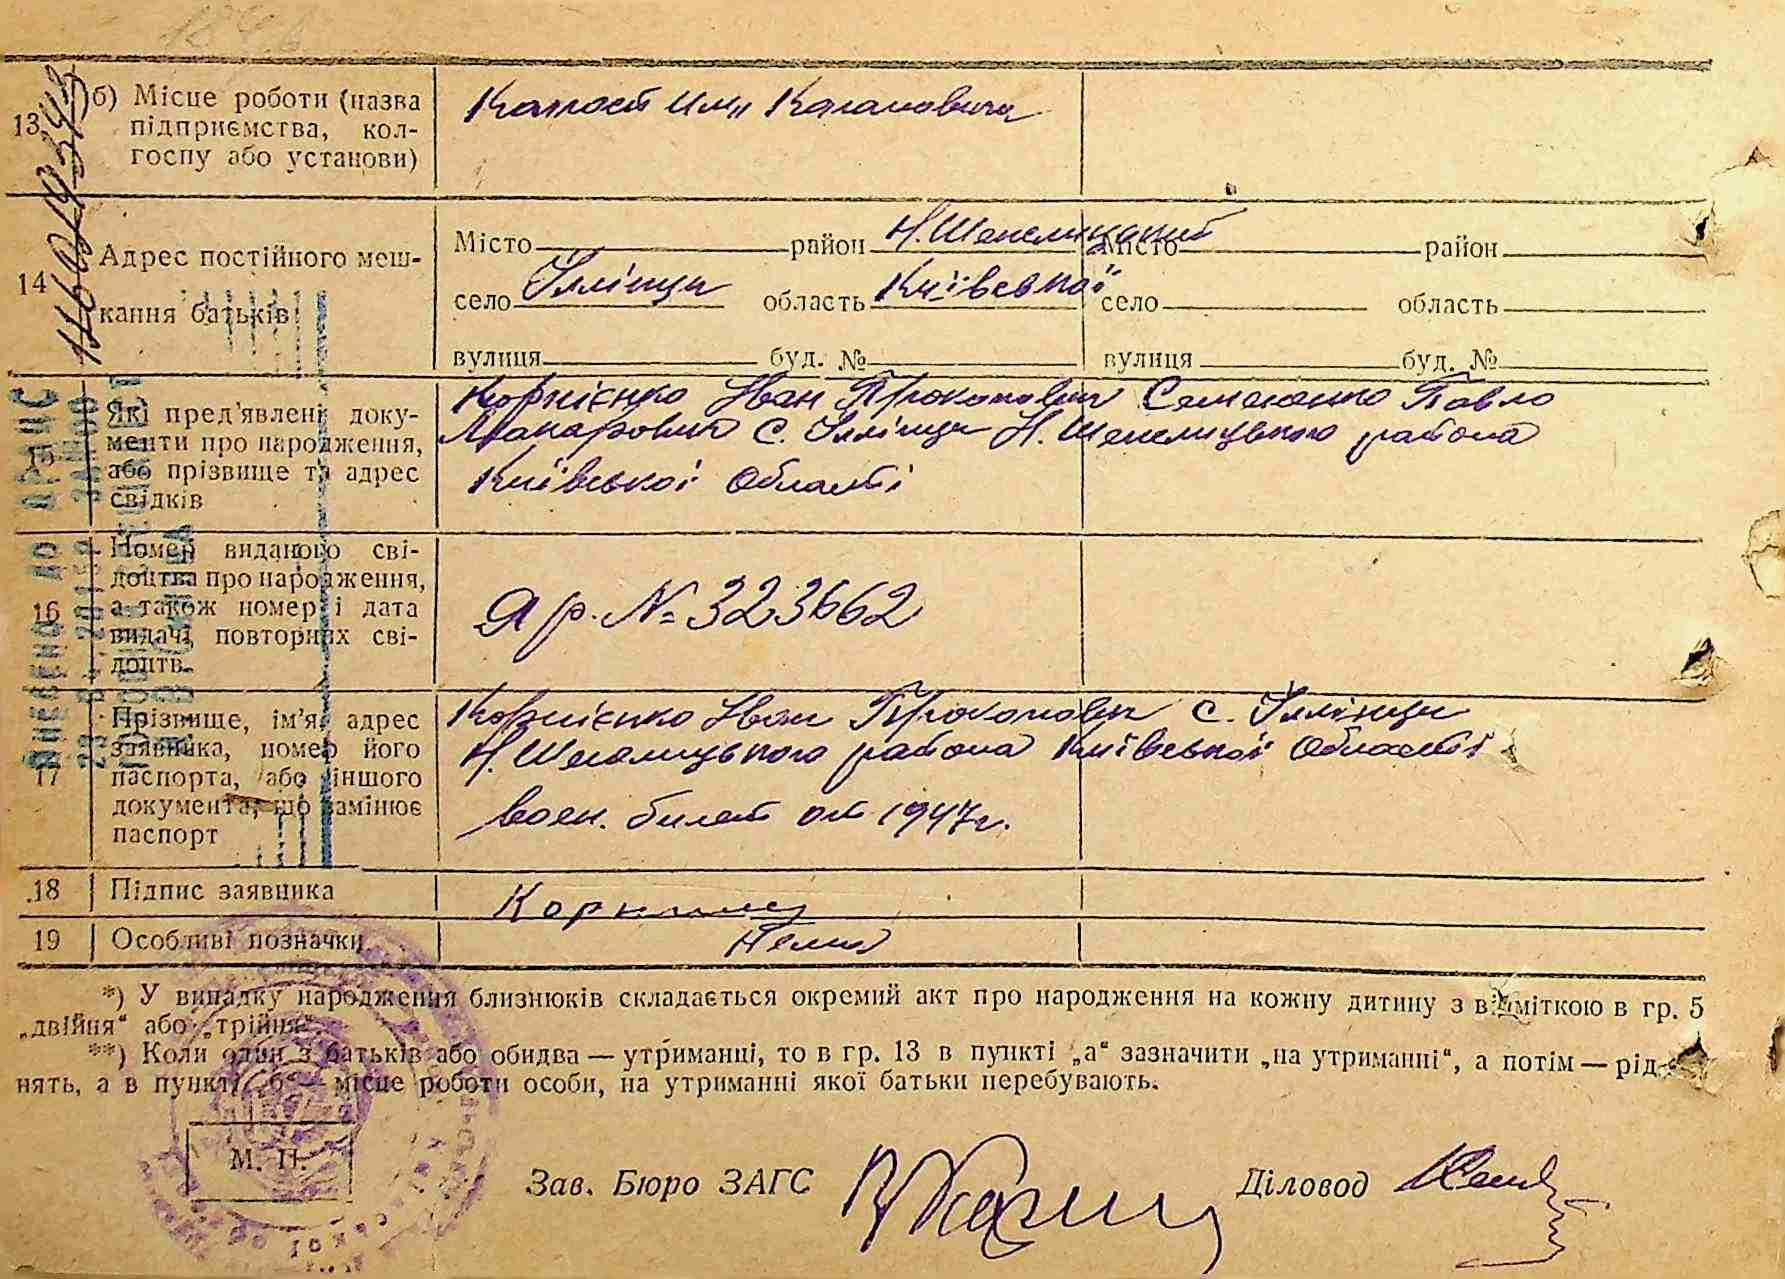 13 б) Місце роботи (назва
підприємства, кол-
госпу або установи)
Колгосп им. Кагановича
14 Адрес постійного меш-
кання батьків
Місто район Н. Шепелицький Місто район
село Іллінци область Київської село область
вулиця буд. № вулиця буд. №
15 Які пред'явлені доку-
менти про народження,
або прізвище та адрес
свідків
Корнієнко Іван Прокопович Семененко Павло
Макарович с. Іллінци Н. Шепелицького района
Київської Області
16 Номер виданого сві-
доцтва про народження,
а також номер і дата
видачі повторних сві-
доцтв
Яр. № 323662
17 Прізвище, ім'я, адрес
заявника, номер його
паспорта, або іншого
документа, що замінює
паспорт
Корнієнко Іван Прокопович с. Іллінци
Н. Шепелицького района Київської Області
воен. билет от 1947г.
18 Підпис заявника
19 Особливі позначки
*) У випадку народження близнюків складається окремий акт про народження на кожну дитину з відміткою в гр. 5
„двійня“ або „трійня“.
**) Коли один з батьків або обидва — утриманні, то в гр. 13 в пункті „а“ зазначити „на утриманні“, а потім — рід
нять, а в пункті „б“ — місце роботи особи, на утриманні якої батьки перебувають.
М. П.
Зав. Бюро ЗАГС Діловод